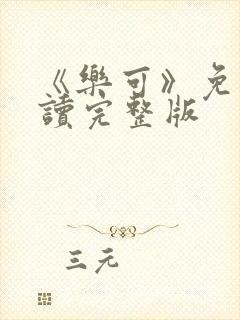 《樂可》免
讀完整版
三元